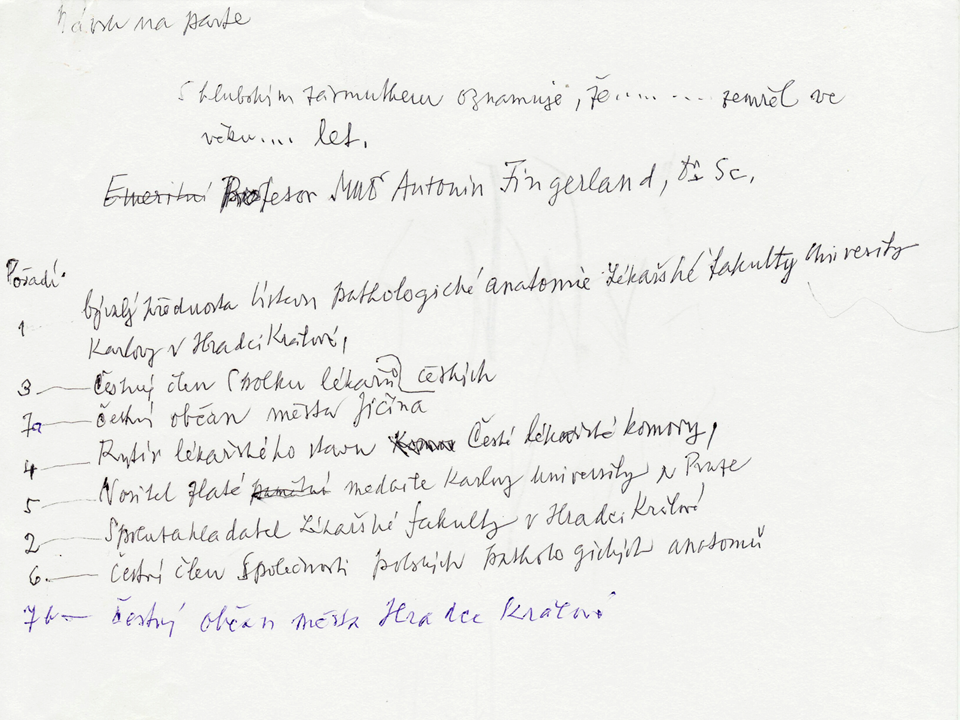 Návrh na parte
S hlubokým zármutkem oznamuje, že.... .... zemřel ve
věku.... let.
Emeritní Profesor MUDr Antonin Fingerland, Dr Sc.
Pořadí.
1 bývalý přednosta Ústavu pathologické anatomie Lékařské fakulty University
Karlovy v Hradci Králové,
3 čestný člen Spolku lékařů českých
7a čestný občan města Jičína
4 Rytíř lékařského stavu České lékařské komory,
5 Nositel zlaté pamětní medaile Karlovy University v Praze
2 Spoluzakladatel Lékařské fakulty v Hradci Králové
6. čestný člen Společnosti polských pathologických anatomů
7b čestný občan města Hradce Králové